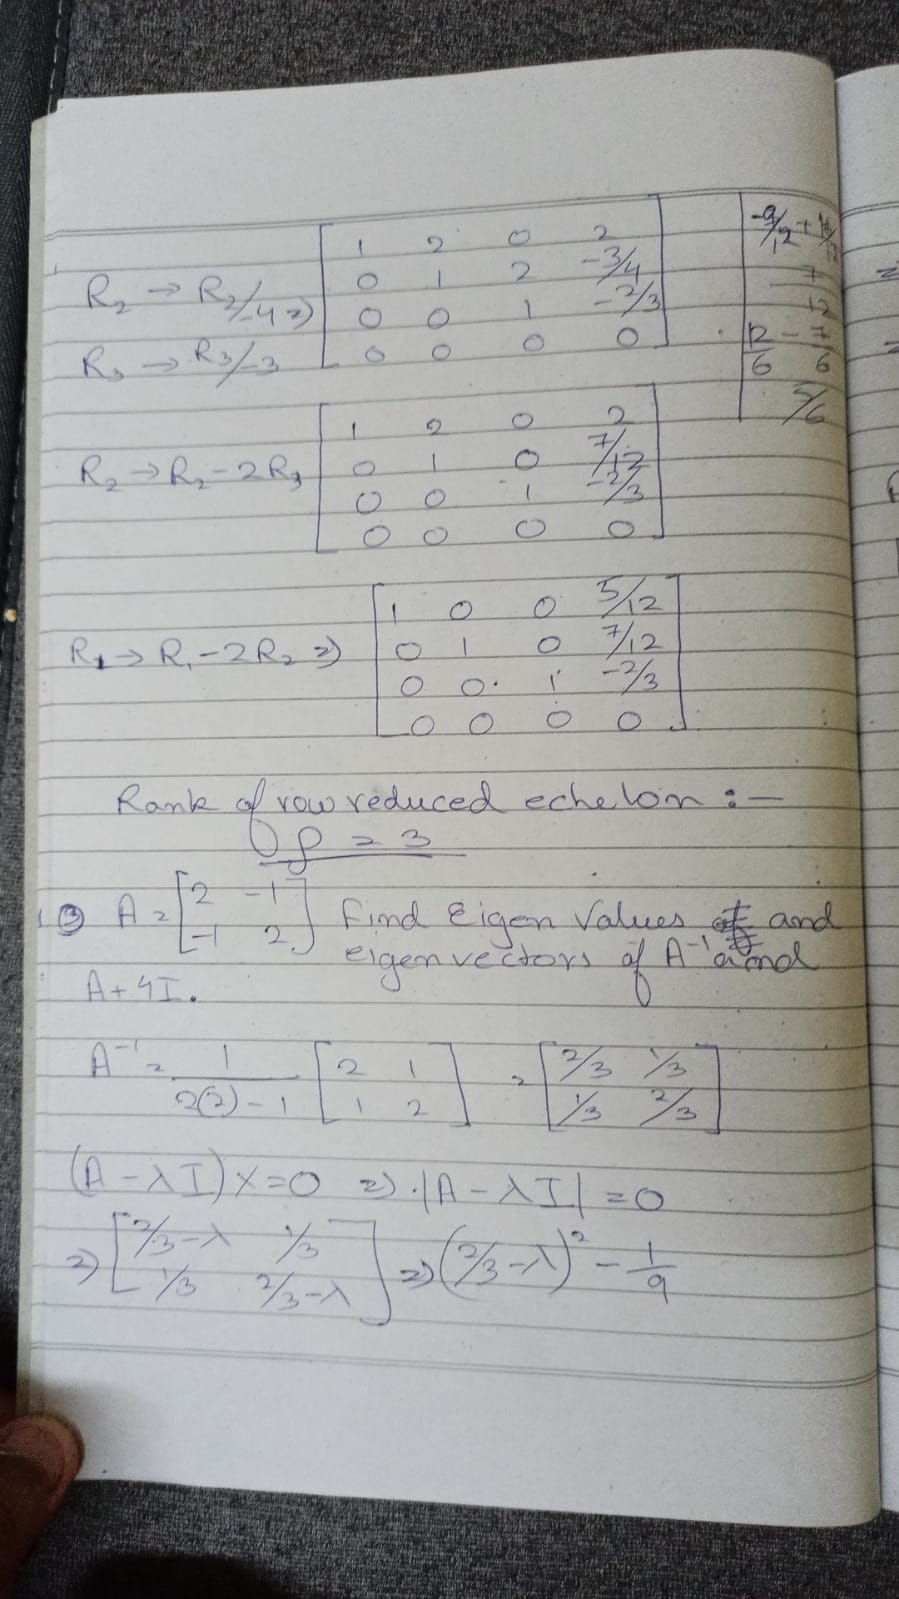 1 2 0 2
R₂ → R₂/-4 => 0 1 2 -3/4
0 0 1 -2/3
R₃ → R₃/-3 0 0 0 0
-9/12 +
7
12
12 - 7
6 6
5/6
1 2 0 2
R₂ → R₂ - 2R₃ 0 1 0 7/12
0 0 1 -2/3
0 0 0 0
1 0 0 5/12
R₁ → R₁ - 2R₂ => 0 1 0 7/12
0 0 1 -2/3
0 0 0 0
Rank of row reduced echelon :-
ρ = 3
③ A = [2 -1
-1 2] Find Eigen Values and
eigen vectors of A⁻¹ and
A + 4I.
A⁻¹ = 1 / 2(2) - 1 [2 1
1 2] = [2/3 1/3
1/3 2/3]
(A - λI) X = 0 => |A - λI| = 0
=> [2/3-λ 1/3
1/3 2/3-λ] => (2/3-λ)² - 1/9